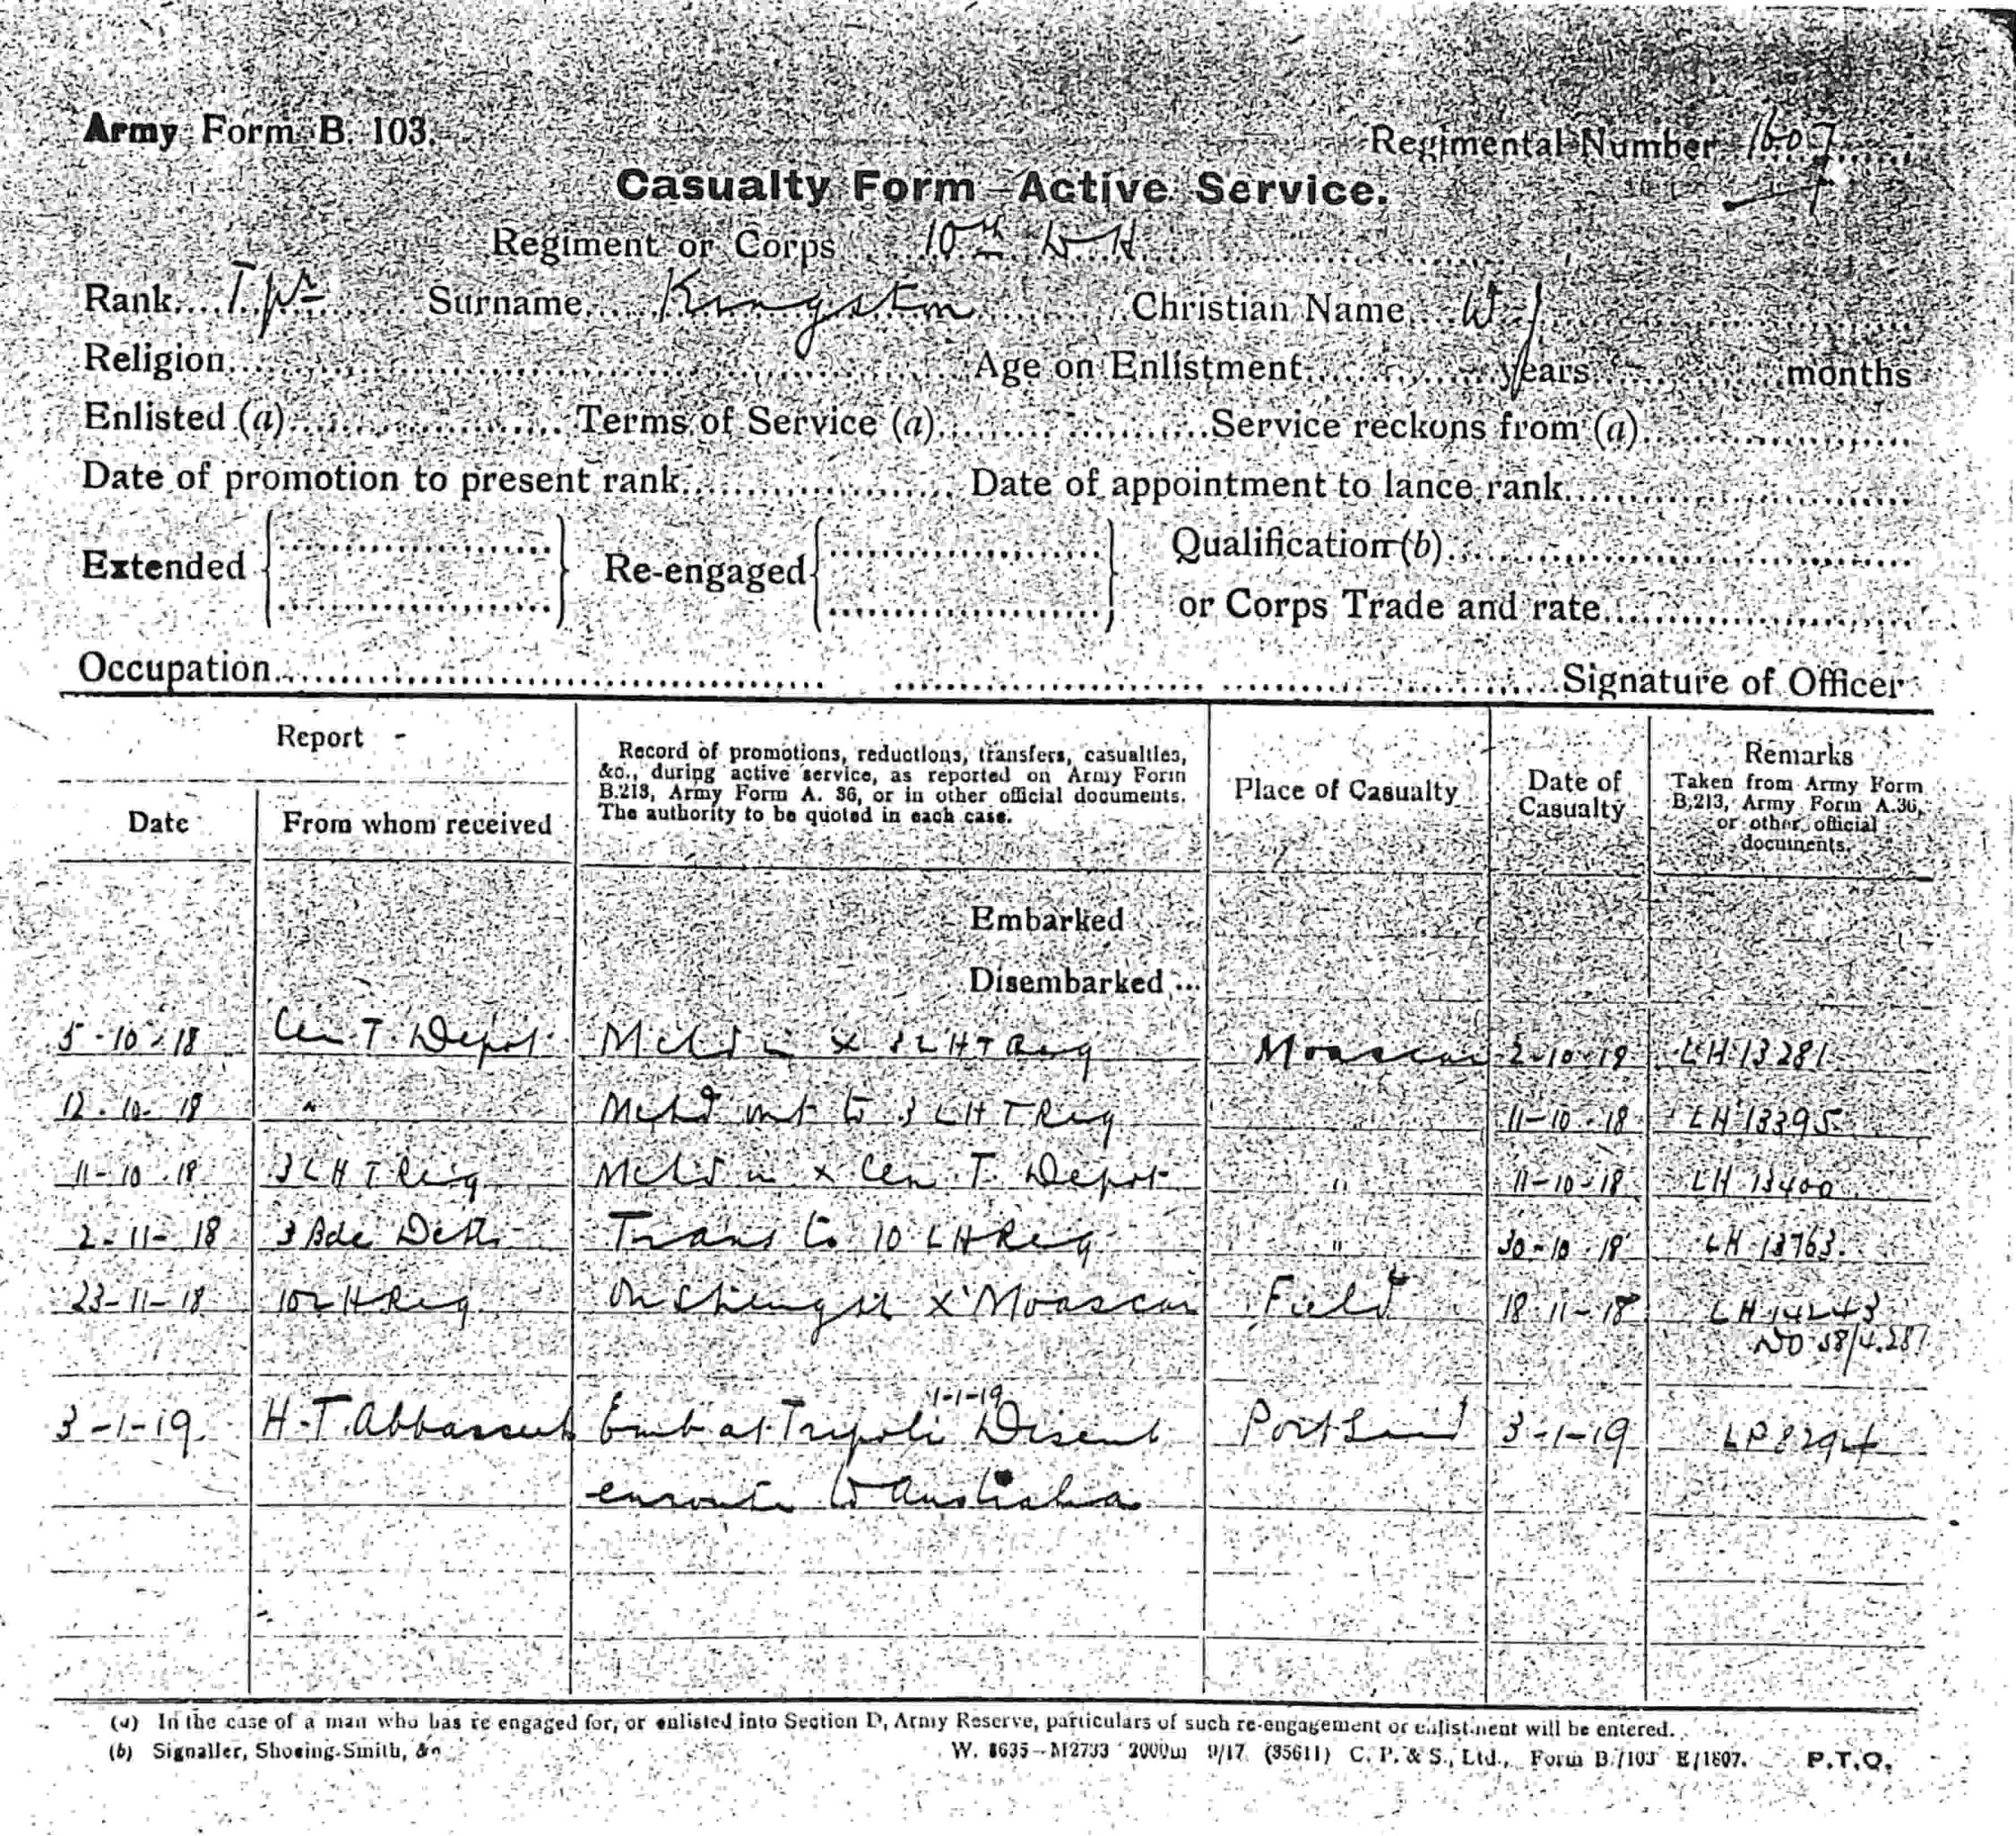 Army Form B. 103.
Regimental Number 1607
Casualty Form—Active Service.
Regiment or Corps 10th L H
Rank Tpr Surname Kingston Christian Name W J
Religion Age on Enlistment years months
Enlisted (a) Terms of Service (a) Service reckons from (a)
Date of promotion to present rank Date of appointment to lance rank
Extended Re-engaged Qualification (b)
or Corps Trade and rate
Occupation Signature of Officer
Report
Date From whom received
Record of promotions, reductions, transfers, casualties,
&c., during active service, as reported on Army Form
B.213, Army Form A. 36, or in other official documents.
The authority to be quoted in each case.
Place of Casualty
Date of
Casualty
Remarks
Taken from Army Form
B.213, Army Form A.36,
or other official
documents.
Embarked
Disembarked ...
5-10-18 Cen T. Depot x 3 L H T Reg Moascar 2-10-18 LH 13281
12-10-18 " out to 3 L H T Reg 11-10-18 LH 13395
11-10-18 3 L H T Reg x Cen T. Depot " 11-10-18 LH 13400
2-11-18 3 Bde Trans to 10 L H Reg " 30-10-18 LH 13763
23-11-18 10 L H Reg On Strength x Moascar Field 18-11-18 LH 14243
1-1-19
3-1-19 H.T. Emb at Tripoli Disemb Port Said 3-1-19 LP 8294
enroute to Australia
(a) In the case of a man who has re-engaged for, or enlisted into Section D, Army Reserve, particulars of such re-engagement or enlistment will be entered.
(b) Signaller, Shoeing-Smith, &c. W. 8635—M2733 2000m 9/17 (35611) C. P. & S., Ltd., Form B./103 E/1807. P.T.O.